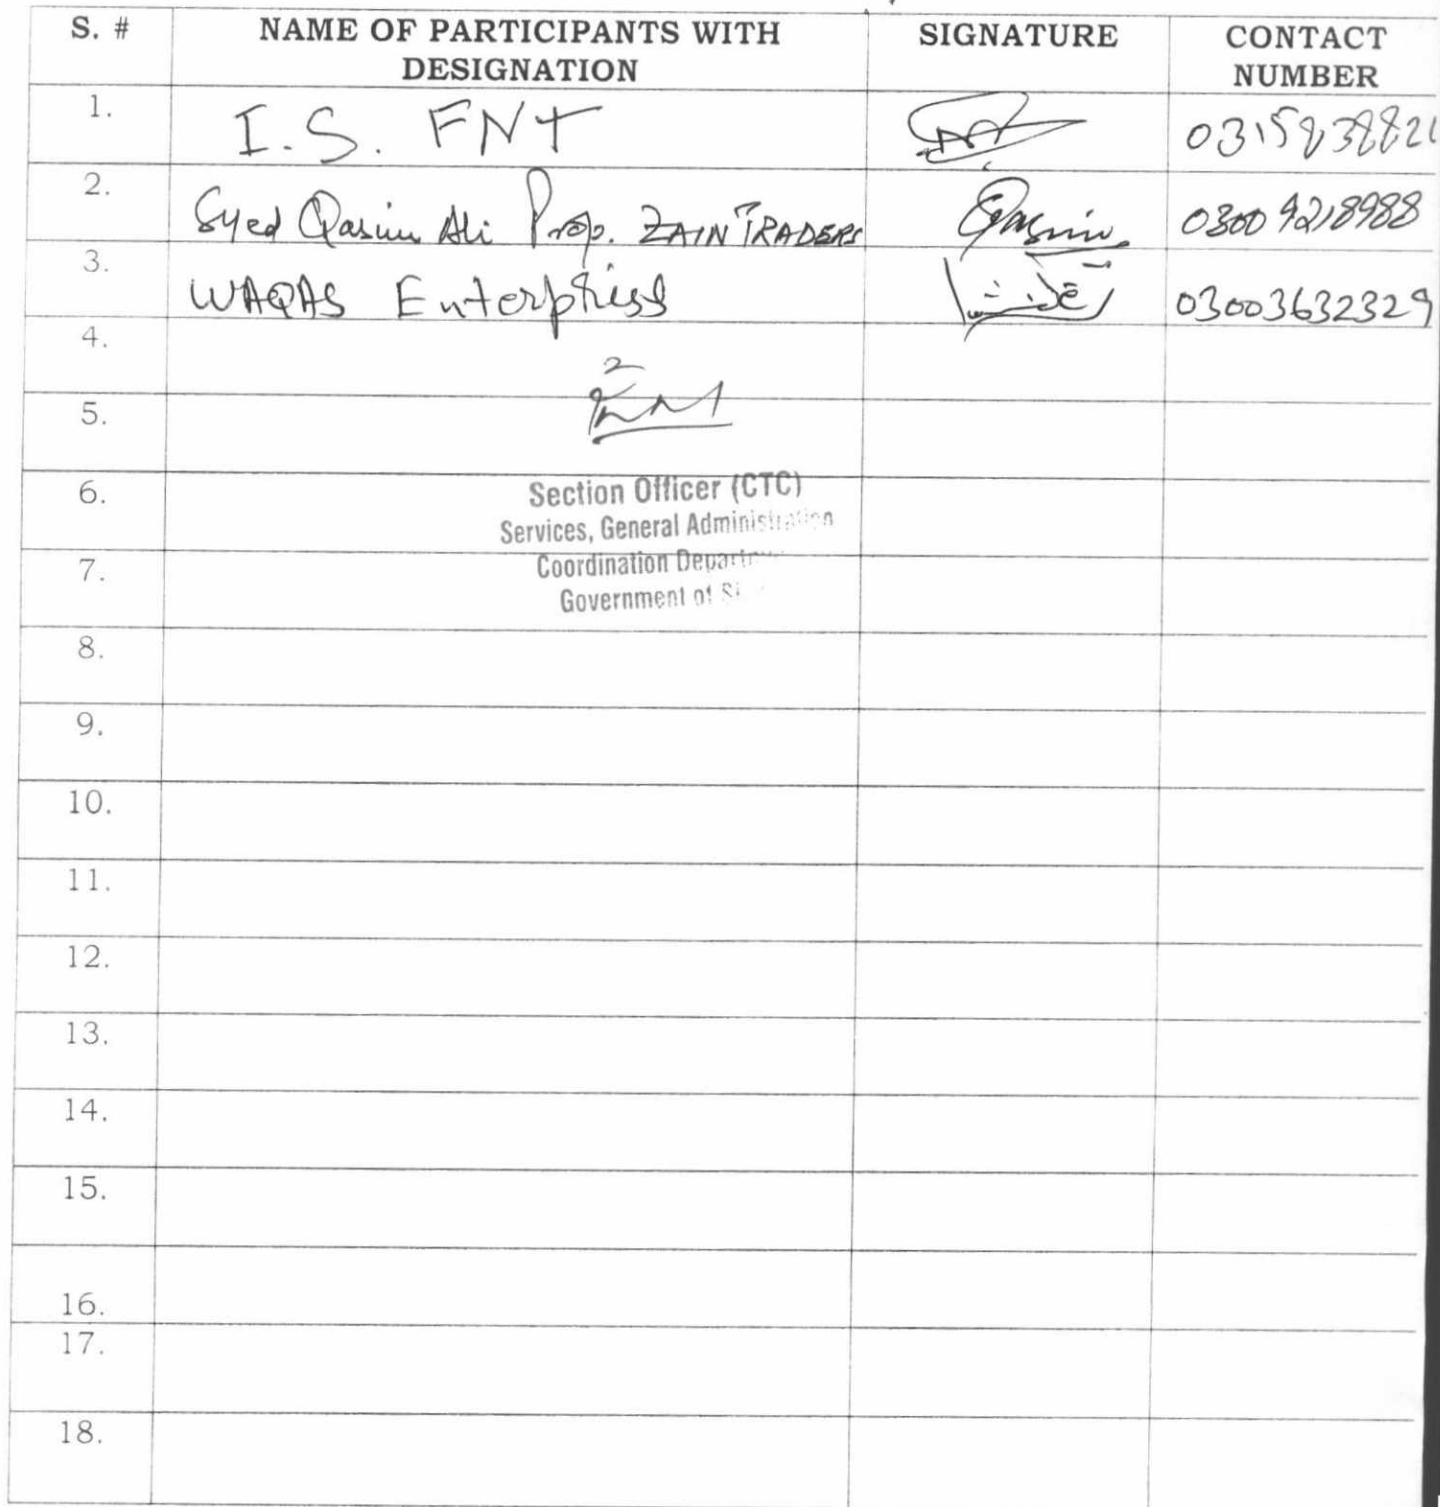 S. # NAME OF PARTICIPANTS WITH DESIGNATION SIGNATURE CONTACT NUMBER
1. I.S. FNT
2. Syed Qasim Ali Prop. ZAIN TRADERS Qasim 03009218988
3. WAQAS Enterpriss 03003632329
4.
5.
6. Section Officer (CTC)
Services, General Administration
7. Coordination
Government of
8.
9.
10.
11.
12.
13.
14.
15.
16.
17.
18.